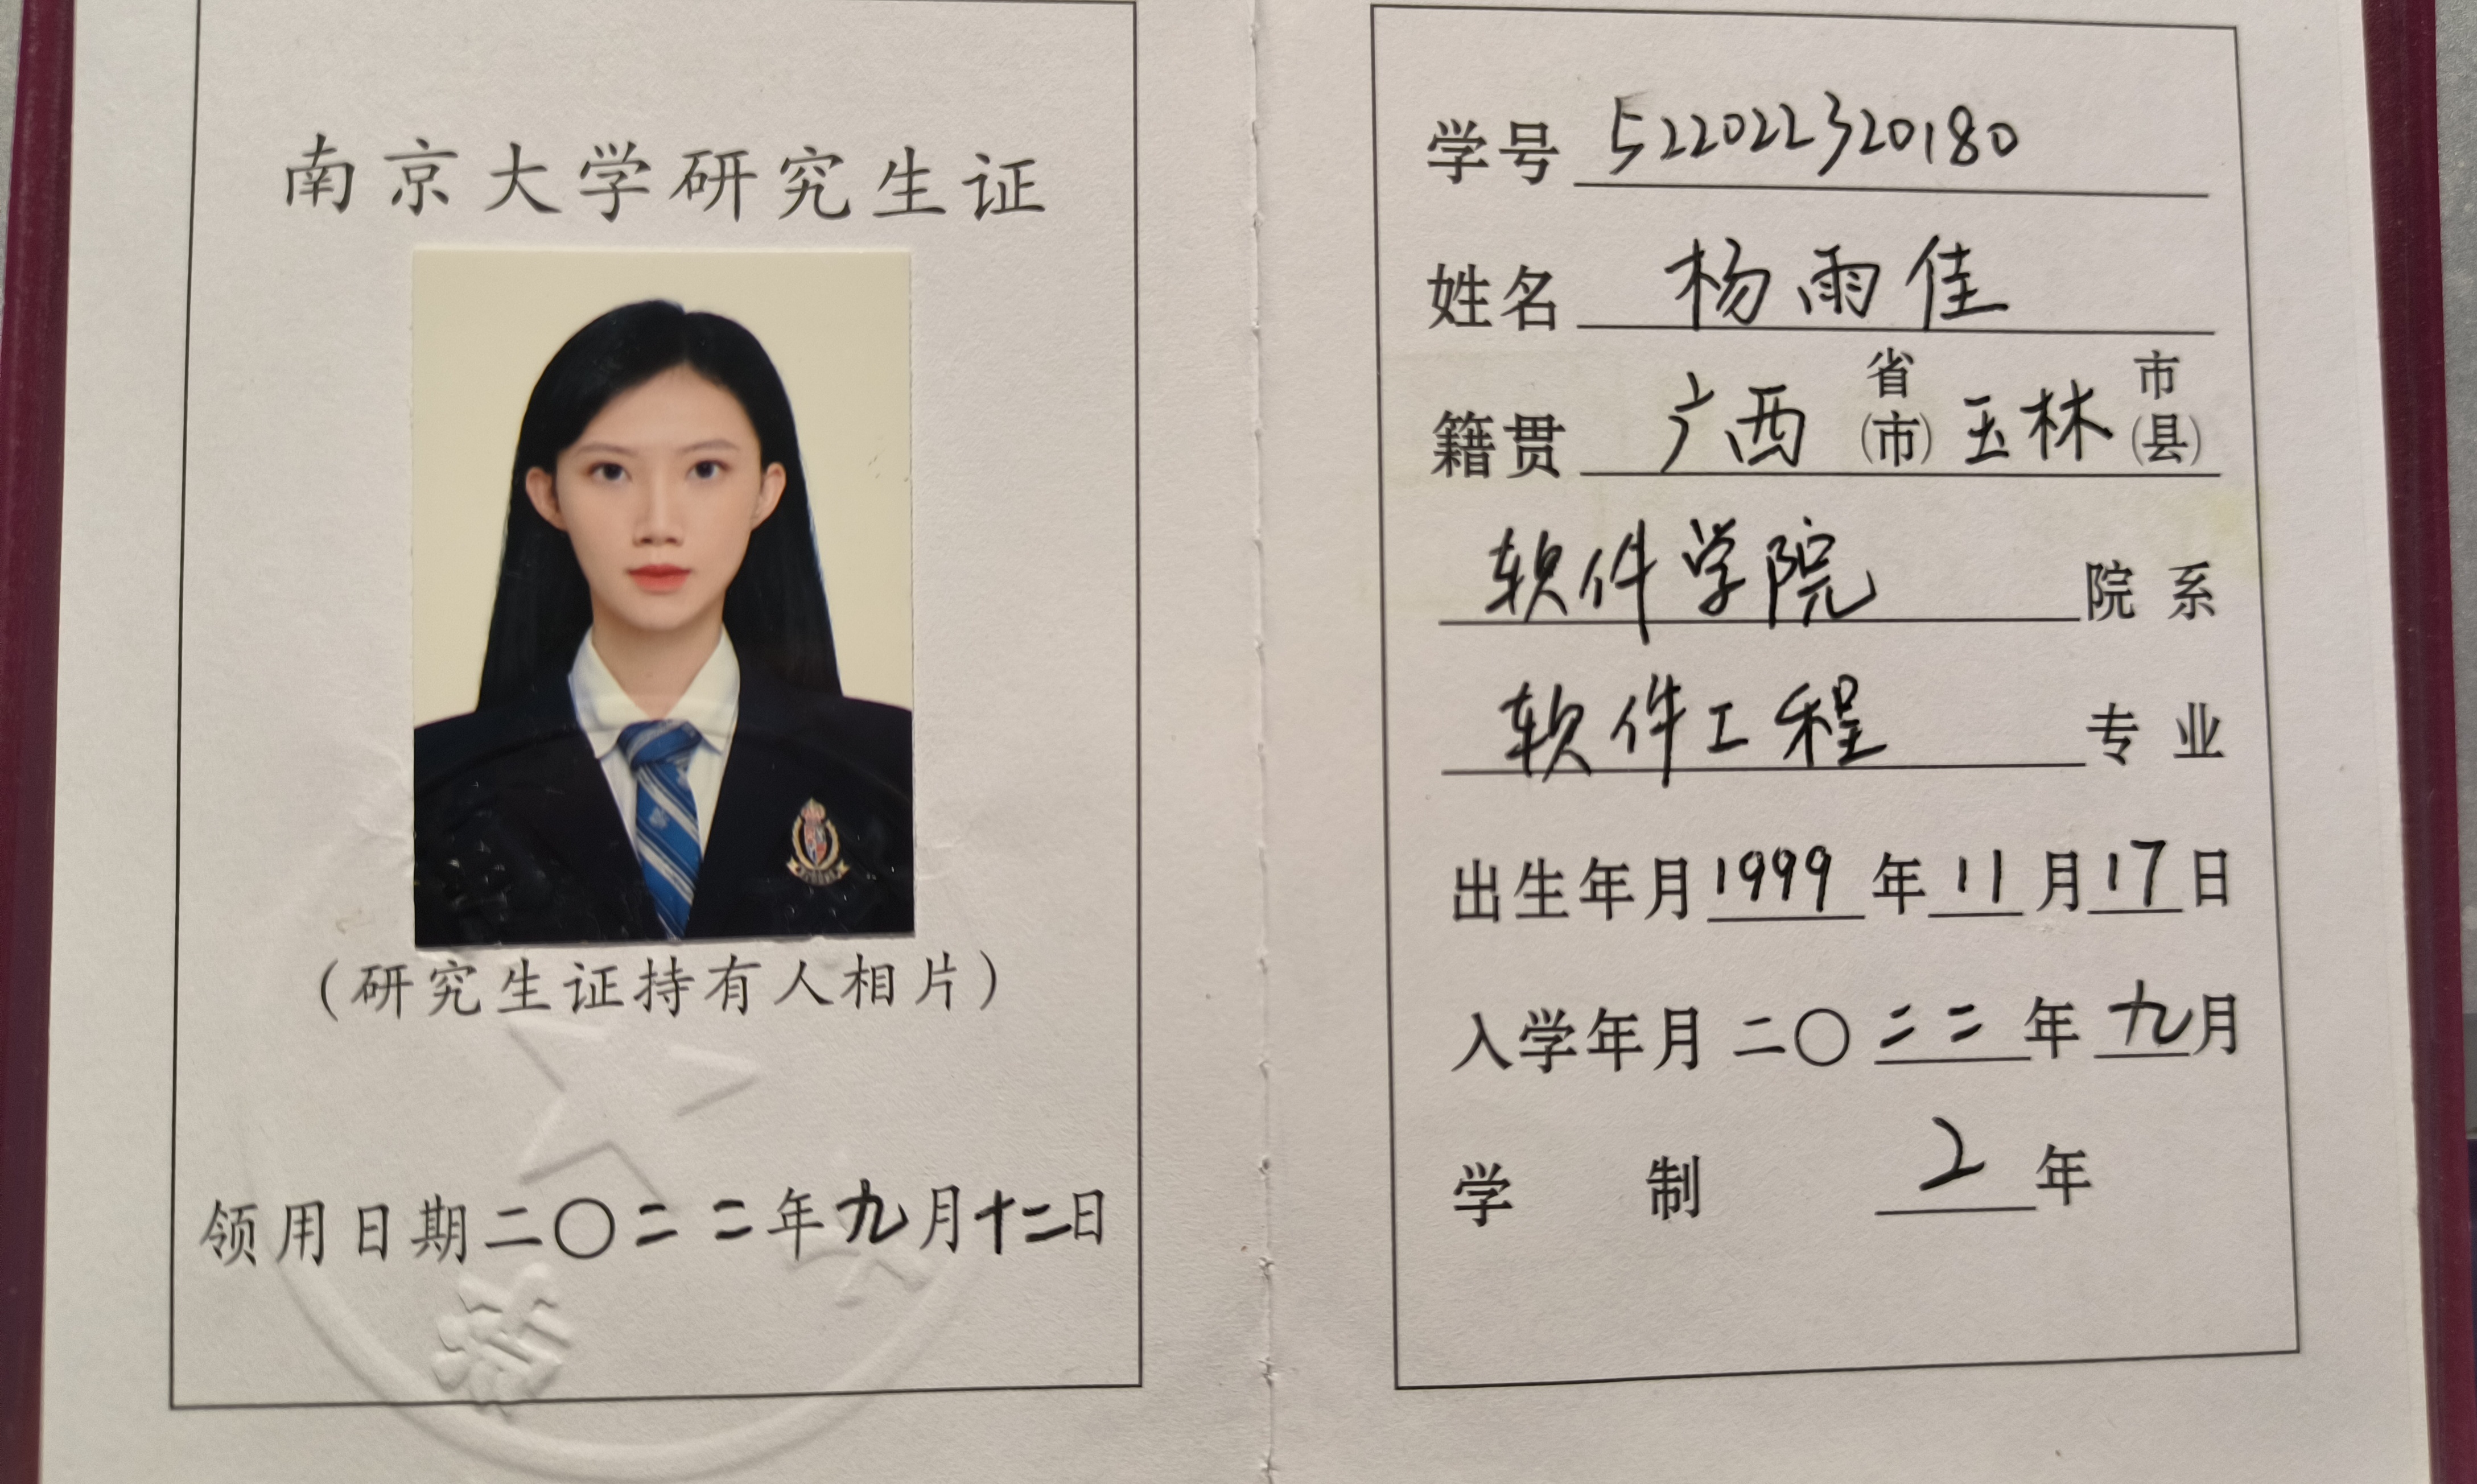 南京大学研究生证
（研究生证持有人相片）
领用日期二〇二二年九月十二日
学号 522022320180
姓名 杨雨佳
籍贯 广西 省(市) 玉林 市(县)
软件学院 院系
软件工程 专业
出生年月 1999 年 11 月 17 日
入学年月 二〇二二年九月
学制 2 年